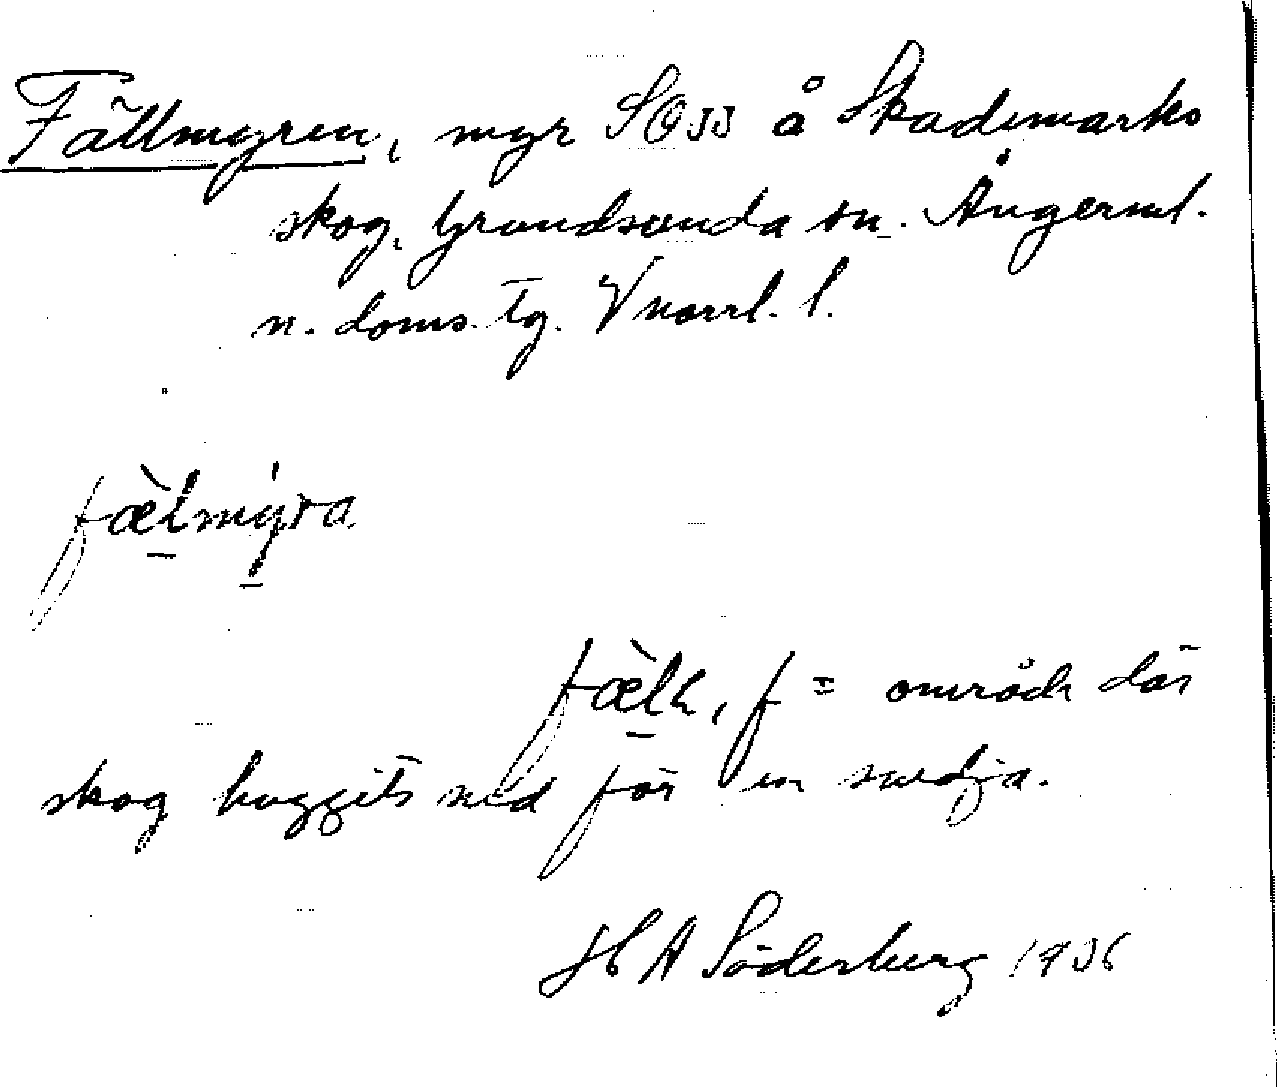 Fällmyren, myr SO33 å Skademarks
skog, Grundsunda sn. Ångerml.
n. doms. tg. Vnorrl. l.
fæ̀lmýra
fæ̀lh, f = område där
skog huggits ned för en svedja.
H A Söderberg 1936